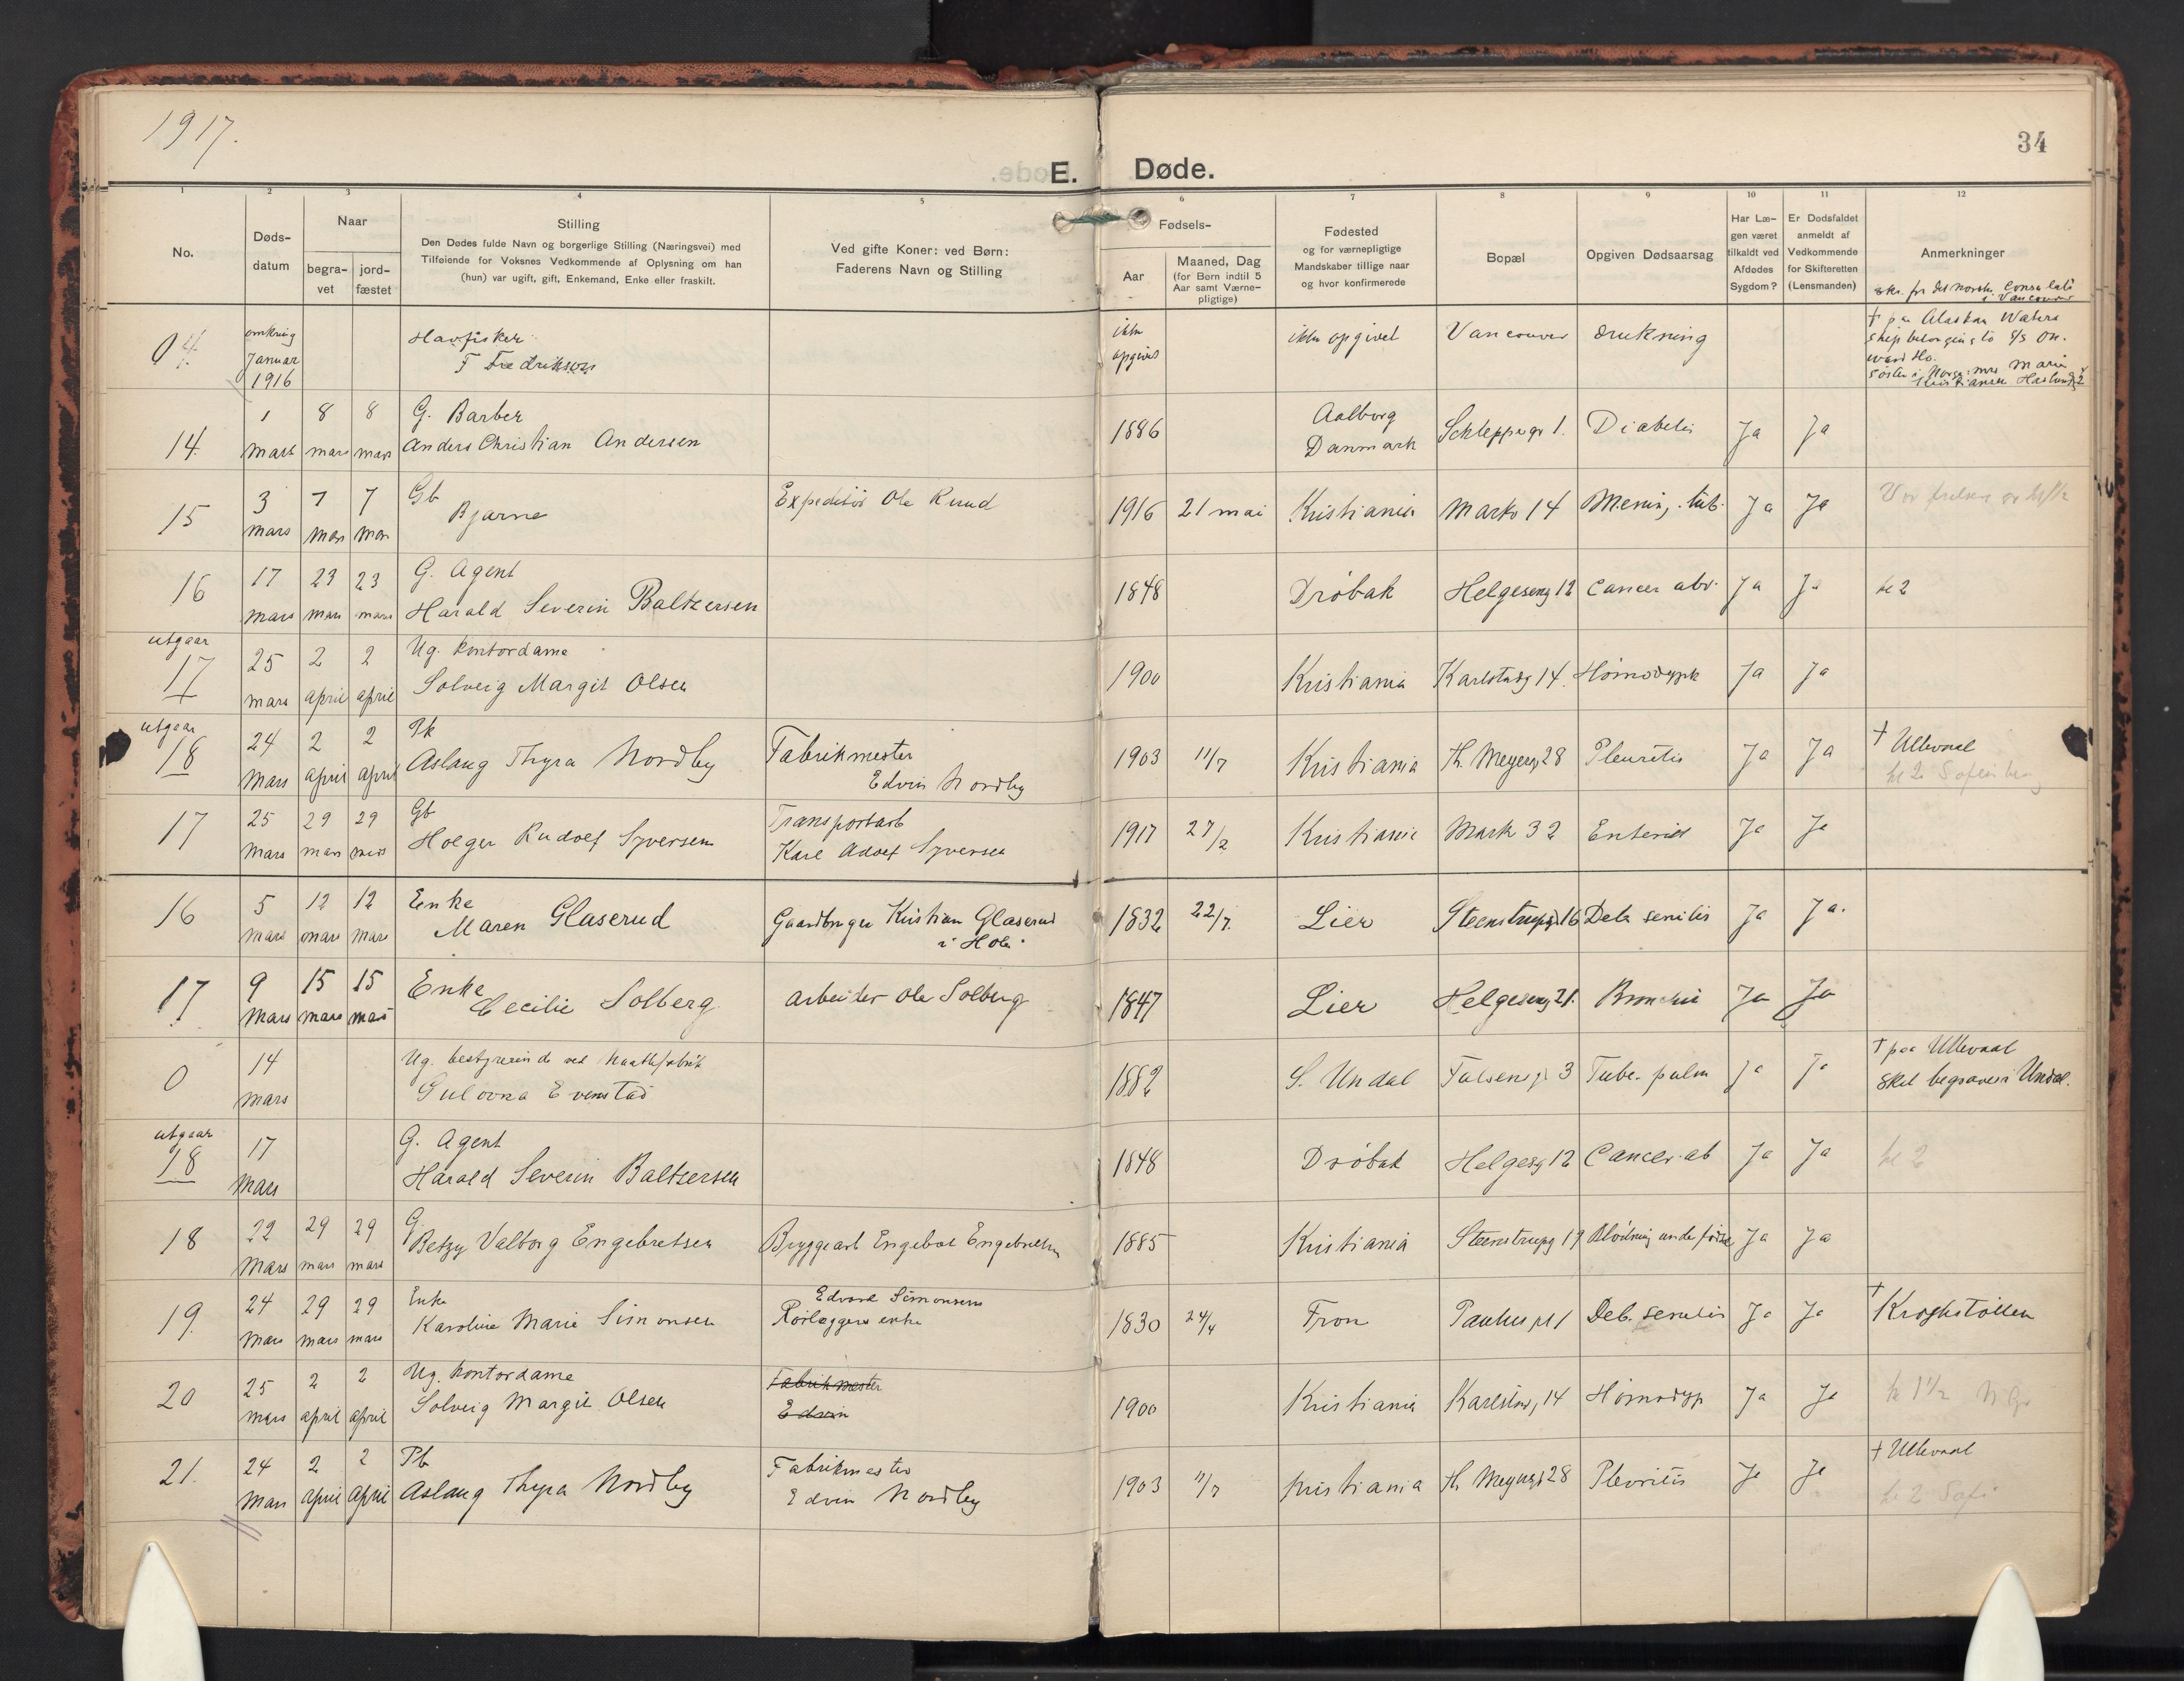 1917.
34
E. Døde.
1 2 3 4 5 6 7 8 9 10 11 12
No.
Døds-
datum
Naar
begra-
vet
jord-
fæstet
Stilling
Den Dødes fulde Navn og borgerlige Stilling (Næringsvei) med
Tilføiende for Voksnes Vedkommende af Oplysning om han
(hun) var ugift, gift, Enkemand, Enke eller fraskilt.
Ved gifte Koner: ved Børn:
Faderens Navn og Stilling
Fødsels-
Aar
Maaned, Dag
(for Børn indtil 5
Aar samt Værne-
pligtige)
Fødested
og for værnepligtige
Mandskaber tillige naar
og hvor konfirmerede
Bopæl
Opgiven Dødsaarsag
Har Læ-
gen været
tilkaldt ved
Afdødes
Sygdom?
Er Dødsfaldet
anmeldt af
Vedkommende
for Skifteretten
(Lensmanden)
Anmerkninger
skr. fra det norske Consulat
i Vancouver
omkring
Januar
1916
Havfisker
F Fredriksen
ikke
opgivet
ikke opgivet
Vancouver
drukning
† paa Alaskan Waters
14
1 mars
8 mars
8 mars
G. Barber
Anders Christian Andersen
1886
Aalborg
Danmark
Schleppegr 1.
Diabetis
Ja
Ja
15
3 mars
7 mars
7 mars
Gb
Bjarne
Expeditør Ole Ruud
1916
21 mai
Kristiania
Markv 14
Mening. tub.
Ja
Ja
16
17 mars
23 mars
23 mars
G. Agent
Harald Severin Baltzersen
1848
Drøbak
Helgeseng 12
Cancer abd.
Ja
Ja
kl 2
utgaar
17
25 mars
2 april
2 april
Ug. Kontordame
Solveig Margit Olsen
1900
Kristiania
Karlstadg 14.
Ja
Ja
utgaar
18
24 mars
2 april
2 april
Pk
Aslaug Thyra Nordby
Fabrikmester
Edvin Nordby
1903
11/7
Kristiania
Th. Meyersg 28
Pleuritis
Ja
Ja
† Ullevaal
17
25 mars
29 mars
29 mars
Gb
Holger Rudolf Syversen
Transportarb
Karl Adolf Syversen
1917
27/2
Kristiania
Mark 32
Enterit
Ja
Ja
16
5 mars
12 mars
12 mars
Enke
Maren Glaserud
Gaardbruger Kristian Glaserud
i Hole
1832
22/7.
Lier
Steenstrupsg 16
Deb. senilis
Ja
Ja.
17
9 mars
15 mars
15 mars
Enke
Cecilie Solberg
Arbeider Ole Solberg
1847
Lier
Helgeseng 21.
Ja
Ja
0
14 mars
Gulovna Evenstad
1882
S. Undal
Tub. pulm
Ja
Ja
† paa Ullevaal
Skal begraves i Undal.
utgaar
18
17 mars
G. Agent
Harald Severin Baltzersen
1848
Drøbak
Helgesg 12
Cancer. ab
Ja
Ja
kl 2
18
22 mars
29 mars
29 mars
G.
Betzy Valborg Engebretsen
Bryggearb Engebret Engebretsen
1885
Kristiania
Steenstrupg 19
Blødning under fødsel
Ja
Ja
19.
24 mars
29 mars
29 mars
Enke
Karoline Marie Simonsen
Edvard Simonsens
Rørlæggers enke
1830
24/4
Fron
Paulus pl 1
Deb. senilis
Ja
Ja
†
Krogstøtten
20
25 mars
2 april
2 april
Ug. Kontordame
Solveig Margit Olsen
Fabrikmester
Edvin
1900
Kristiania
Karlstadg, 14
Ja
Ja
kl 1½
21.
24 mars
2 april
2 april
Pb
Aslaug Thyra Nordby
Fabrikmester
Edvin Nordby
1903
11/7
Kristiania
Th. Meyersg 28
Plevritis
Ja
Ja
† Ullevaal
kl 2 Sofi